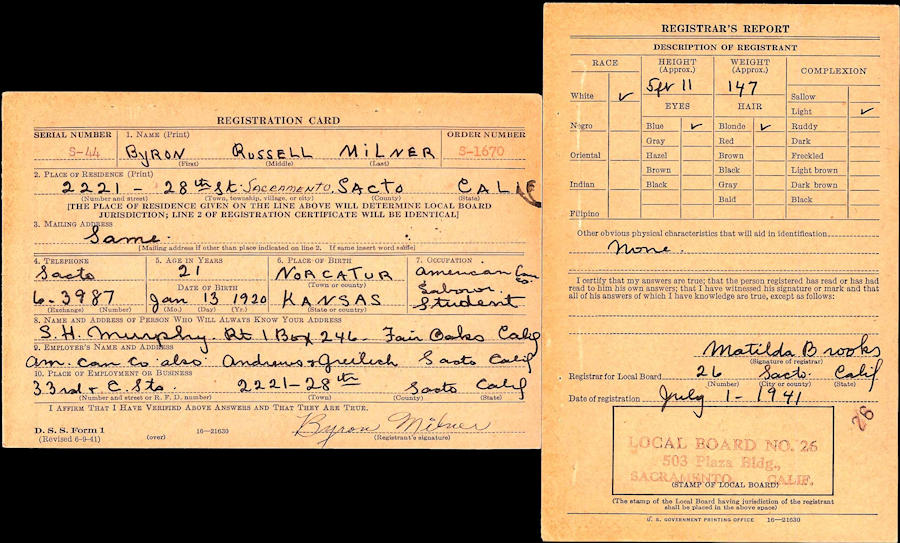 REGISTRATION CARD
SERIAL NUMBER 1. NAME (Print) ORDER NUMBER
S-44 BYRON RUSSELL MILNER S-1670
(First) (Middle) (Last)
2. PLACE OF RESIDENCE (Print)
2221 - 28th St. SACRAMENTO, SACTO CALIF
(Number and street) (Town, township, village, or city) (County) (State)
[THE PLACE OF RESIDENCE GIVEN ON THE LINE ABOVE WILL DETERMINE LOCAL BOARD
JURISDICTION; LINE 2 OF REGISTRATION CERTIFICATE WILL BE IDENTICAL]
3. MAILING ADDRESS
Same.
[Mailing address if other than place indicated on line 2. If same insert word same]
4. TELEPHONE 5. AGE IN YEARS 6. PLACE OF BIRTH 7. OCCUPATION
Sacto 21 NORCATUR American Can Co.
DATE OF BIRTH (Town or county) Labor.
6-3987 Jan 13 1920 KANSAS Student
(Exchange) (Number) (Mo.) (Day) (Yr.) (State or country)
8. NAME AND ADDRESS OF PERSON WHO WILL ALWAYS KNOW YOUR ADDRESS
S.H. Murphy. Rt 1 Box 246. Fair Oaks Calif
9. EMPLOYER'S NAME AND ADDRESS
Am. Can Co also Andrews & Sacto Calif
10. PLACE OF EMPLOYMENT OR BUSINESS
33rd & C. Sts. 2221-28th Sacto Calif
(Number and street or R. F. D. number) (Town) (County) (State)
I AFFIRM THAT I HAVE VERIFIED ABOVE ANSWERS AND THAT THEY ARE TRUE.
Byron Milner
D. S. S. Form 1
(Revised 6-9-41) (over) 16—21630 (Registrant's signature)
REGISTRAR'S REPORT
DESCRIPTION OF REGISTRANT
RACE HEIGHT (Approx.) WEIGHT (Approx.) COMPLEXION
5 ft 11 147
White ✓ EYES HAIR Sallow
Light ✓
Negro Blue ✓ Blonde ✓ Ruddy
Gray Red Dark
Oriental Hazel Brown Freckled
Brown Black Light brown
Indian Black Gray Dark brown
Bald Black
Filipino
Other obvious physical characteristics that will aid in identification
None.
I certify that my answers are true; that the person registered has read or has had
read to him his own answers; that I have witnessed his signature or mark and that
all of his answers of which I have knowledge are true, except as follows:
Matilda Brooks
(Signature of registrar)
Registrar for Local Board 26 Sacto. Calif
(Number) (City or county) (State)
Date of registration July 1 - 1941
26
LOCAL BOARD NO. 26
503 Plaza Bldg.,
SACRAMENTO, CALIF.
(STAMP OF LOCAL BOARD)
(The stamp of the Local Board having jurisdiction of the registrant
shall be placed in the above space)
U. S. GOVERNMENT PRINTING OFFICE 16—21630